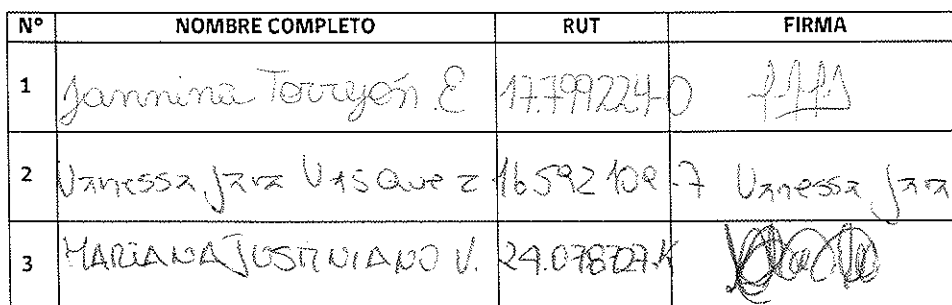 Nº NOMBRE COMPLETO RUT FIRMA
1 Jannina Torrejón E 17.799224-0
2 Vanessa Jara Vasquez 16592109-7 Vanessa Jara
3 MARIANA JUSTINIANO V.